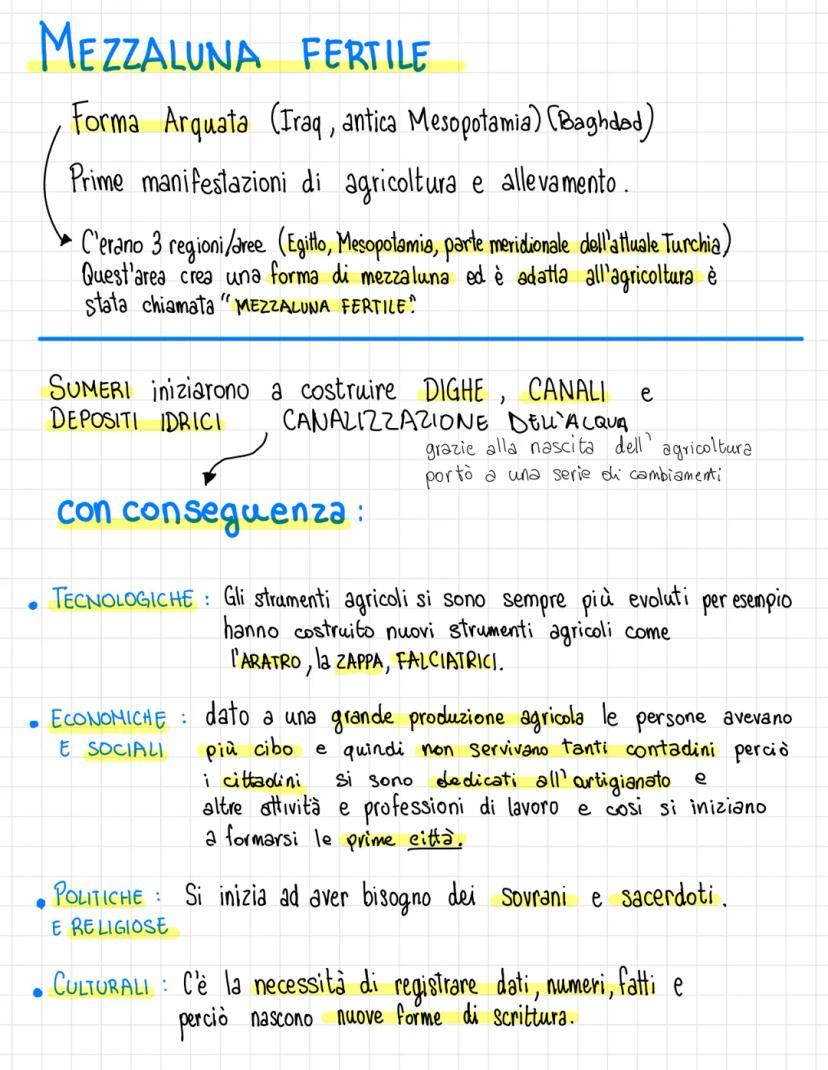 MEZZALUNA FERTILE
Forma Arquata (Iraq, antica Mesopotamia) (Baghdad)
Prime manifestazioni di agricoltura e allevamento.
C'erano 3 regioni/aree (Egitto, Mesopotamia, parte meridionale dell'attuale Turchia)
Quest'area crea una forma di mezzaluna ed è adatta all'agricoltura è
stata chiamata "MEZZALUNA FERTILE".
SUMERI iniziarono a costruire DIGHE, CANALI e
DEPOSITI IDRICI CANALIZZAZIONE DELL'ACQUA
grazie alla nascita dell'agricoltura
portò a una serie di cambiamenti
con conseguenza:
• TECNOLOGICHE: Gli strumenti agricoli si sono sempre più evoluti per esempio
hanno costruito nuovi strumenti agricoli come
l'ARATRO, la ZAPPA, FALCIATRICI.
• ECONOMICHE: dato a una grande produzione agricola le persone avevano
E SOCIALI più cibo e quindi non servivano tanti contadini perciò
i cittadini si sono dedicati all'artigianato e
altre attività e professioni di lavoro e così si iniziano
a formarsi le prime città.
• POLITICHE: Si inizia ad aver bisogno dei sovrani e sacerdoti.
E RELIGIOSE
• CULTURALI: C'è la necessità di registrare dati, numeri, fatti e
perciò nascono nuove forme di scrittura.